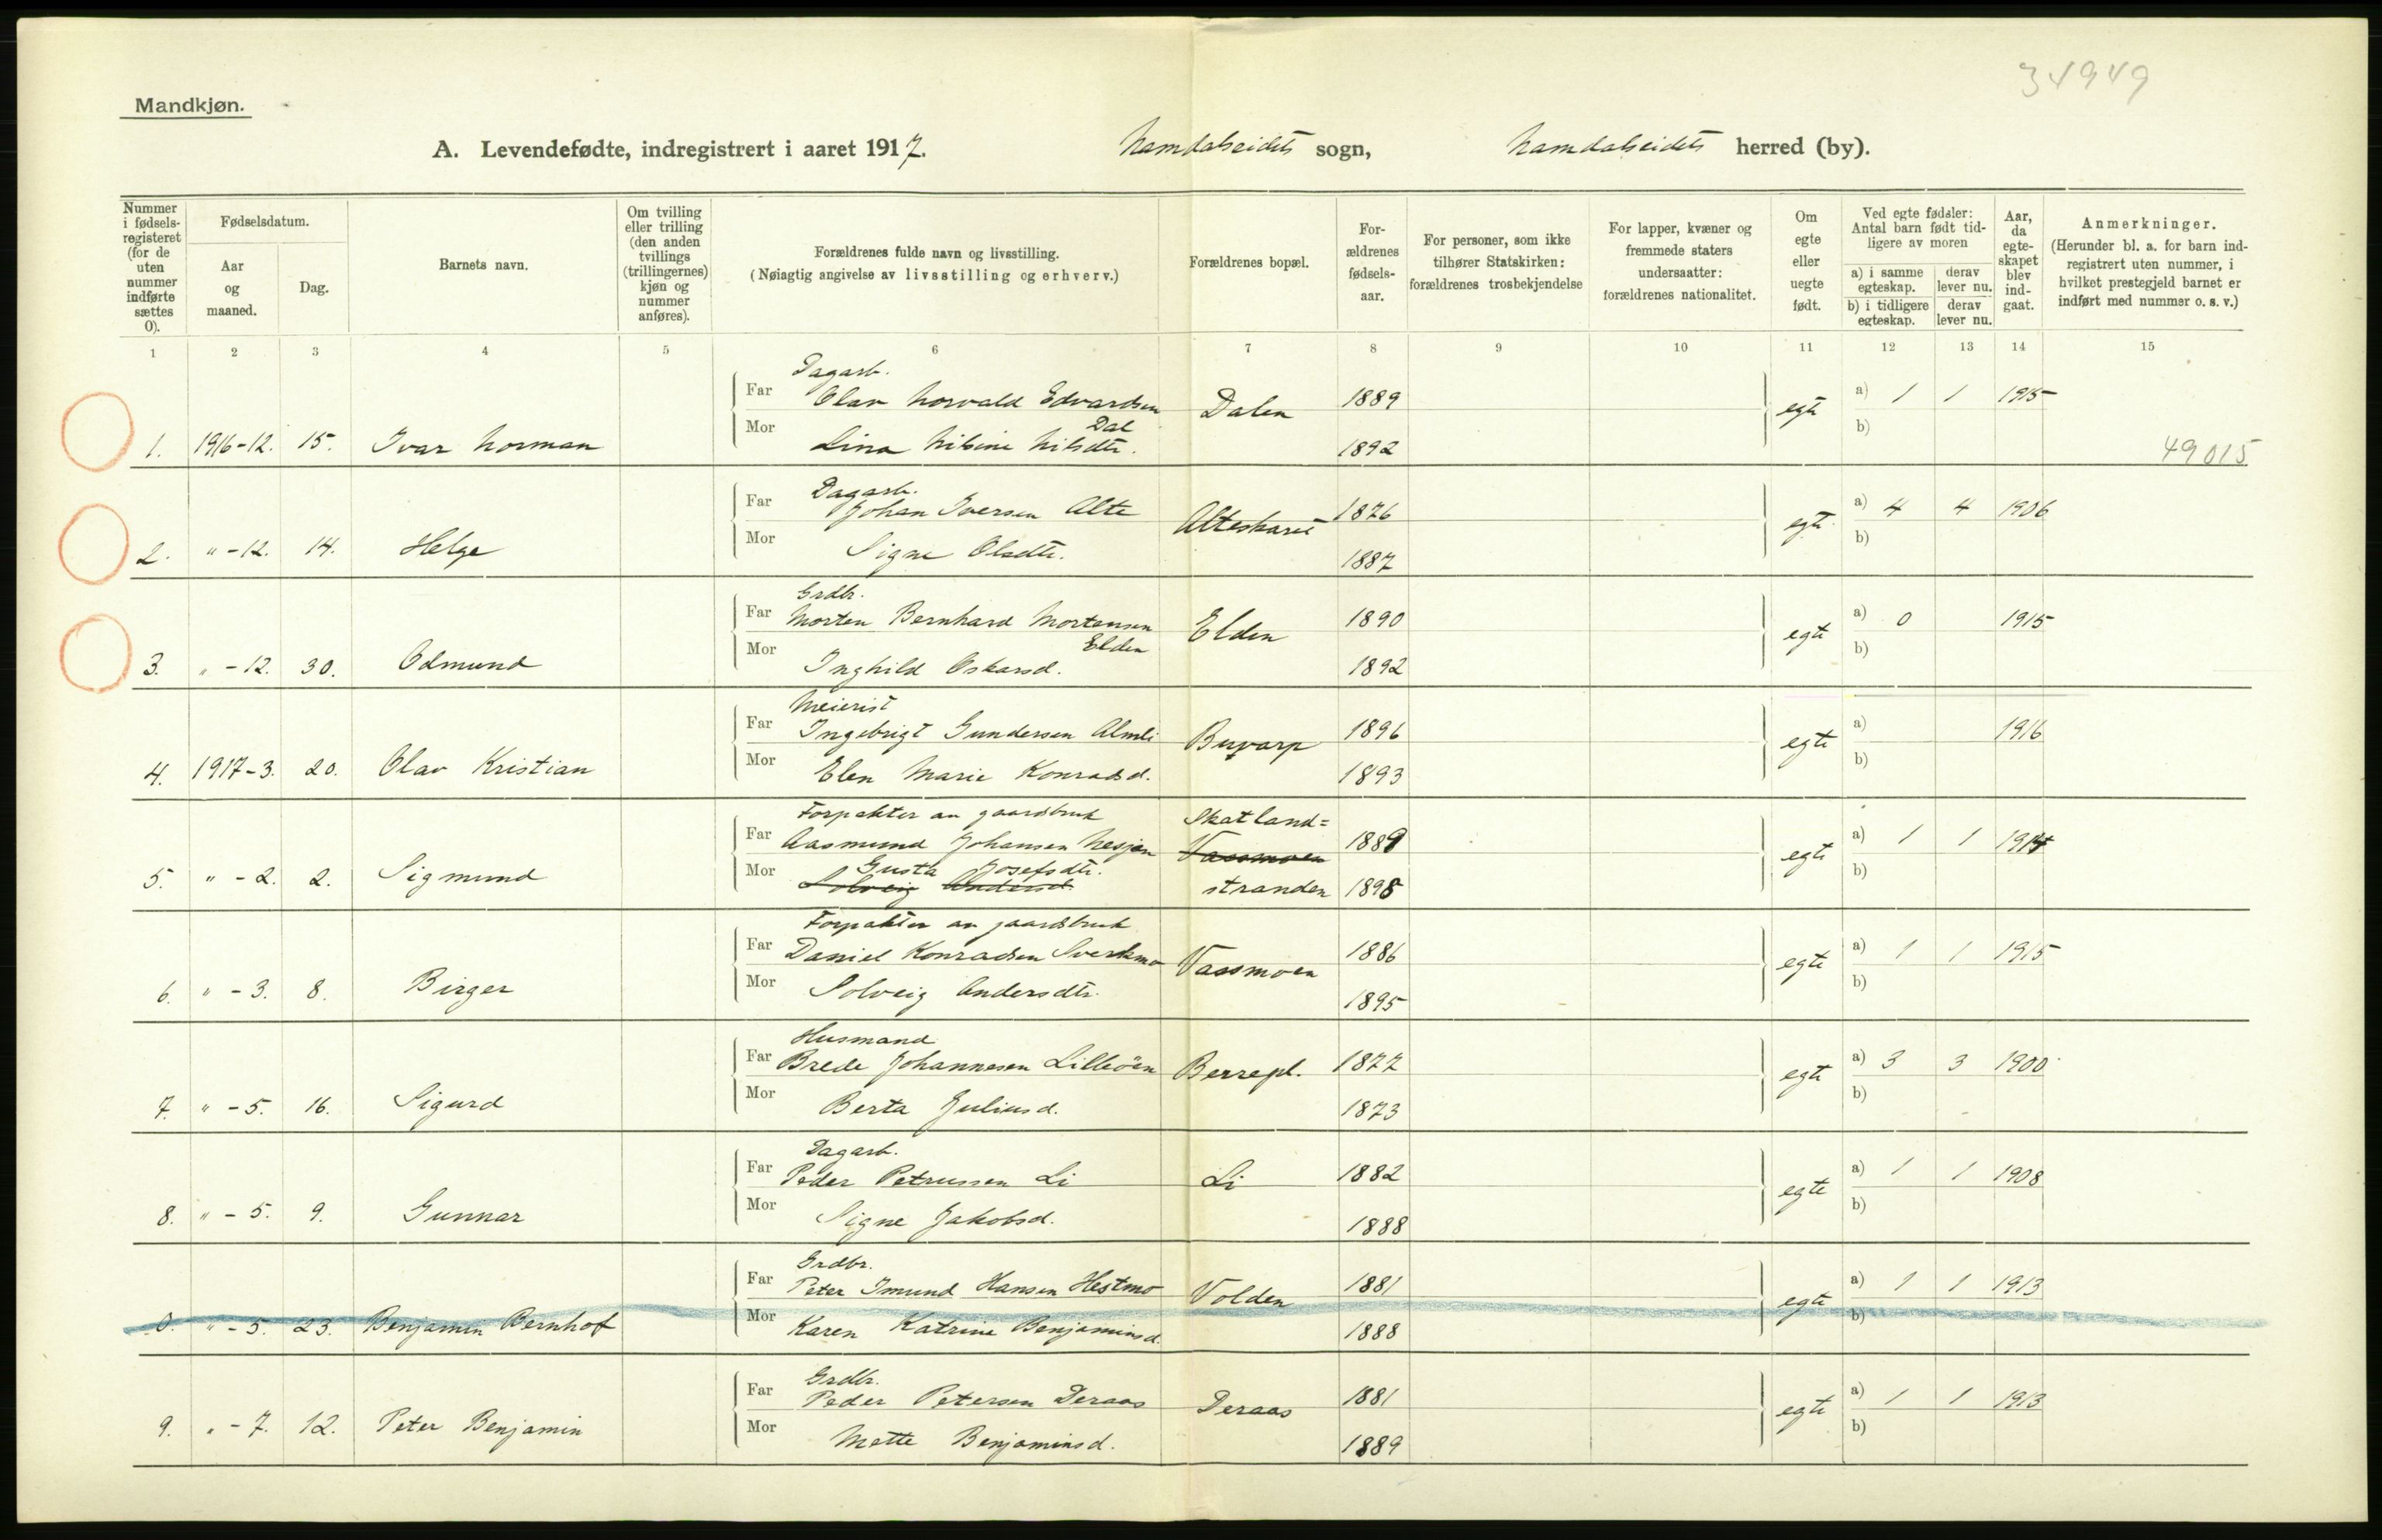 34949
Mandkjøn.
A. Levendefødte, indregistrert i aaret 1917. Namdalseidets sogn, Namdalseidets herred (by).
Nummer i fødselsregisteret (for de uten nummer indførte sættes 0).
Fødselsdatum.
Aar og maaned.
Dag.
Barnets navn.
Om tvilling eller trilling (den anden tvillings (trillingernes) kjøn og nummer anføres).
Forældrenes fulde navn og livsstilling.
(Nøiagtig angivelse av livsstilling og erhverv.)
Forældrenes bopæl.
Forældrenes fødselsaar.
For personer, som ikke tilhører Statskirken: forældrenes trosbekjendelse
For lapper, kvæner og fremmede staters undersaatter: forældrenes nationalitet.
Om egte eller uegte født.
Ved egte fødsler: Antal barn født tidligere av moren
a) i samme egteskap. derav lever nu.
b) i tidligere egteskap. derav lever nu.
Aar, da egteskapet blev indgaat.
Anmerkninger.
(Herunder bl. a. for barn indregistrert uten nummer, i hvilket prestegjeld barnet er indført med nummer o. s. v.)
1 2 3 4 5 6 7 8 9 10 11 12 13 14 15
Dagarb.
Far Olav Norvald Edvardsen Dalen 1889 egte a) 1 1 1915
Dal
1. 1916-12. 15. Ivar Norman Mor Lina Nilsine Nilsdtr. 1892 b) 49015
Dagarb.
Far Johan Iversen Alte Alteskaret 1876 egte a) 4 4 1906
2. " -12. 14. Helge Mor Signe Olsdtr. 1887 b)
Grdbr.
Far Morten Bernhard Mortensen Elden 1890 egte a) 0 1915
Elden
3. " -12. 30. Odmund Mor Inghild Oskarsd. 1892 b)
Meierist
Far Ingebrigt Gundersen Almli Buvarp 1896 egte a) 1916
4. 1917-3. 20. Olav Kristian Mor Elen Marie Konradsd. 1893 b)
Forpakter av gaardsbruk Skatland=
Far Aasmund Johansen Nesjan Vassmoen 1889 egte a) 1 1 1914
Gusta Josefsdtr.
5. " -2. 2. Sigmund Mor Solveig Andersd. stranden 1898 b)
Forpakter av gaardsbruk
Far Daniel Konradsen Sverkmo Vassmoen 1886 egte a) 1 1 1915
6. " -3. 8. Birger Mor Solveig Andersdtr. 1895 b)
Husmand
Far Brede Johannesen Lilleöen Berrepl. 1877 egte a) 3 3 1900
7. " -5. 16. Sigurd Mor Berta Juliusd. 1873 b)
Dagarb.
Far Peder Petrussen Li Li 1882 egte a) 1 1 1908
8. " -5. 9. Gunnar Mor Signe Jakobsd. 1888 b)
Grdbr.
Far Peter Imund Hansen Hestmo Volden 1881 egte a) 1 1 1913
0. " -5. 23. Benjamin Bernhof Mor Karen Katrine Benjaminsd. 1888 b)
Grdbr.
Far Peder Petersen Deraas Deraas 1881 egte a) 1 1 1913
9. " -7. 12. Peter Benjamin Mor Mette Benjaminsd. 1889 b)